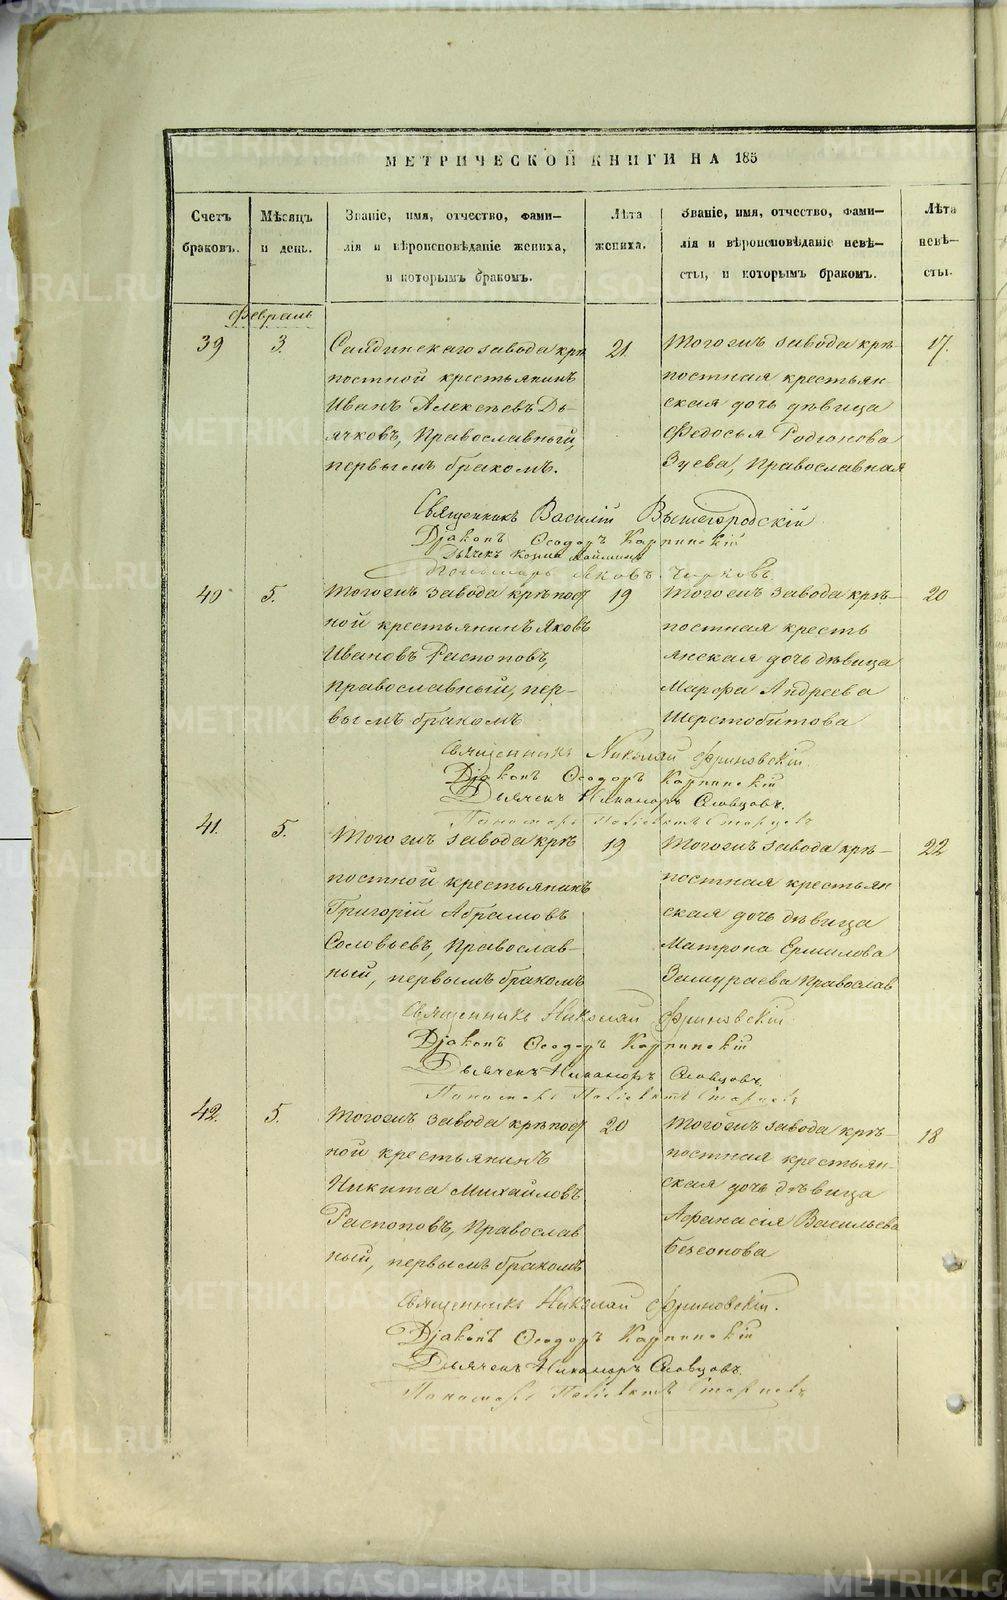 МЕТРИЧЕСКОЙ КНИГИ НА 185
Счетъ браковъ.
Мѣсяцъ и день.
Званіе, имя, отчество, фами-
лія и вѣроисповѣданіе жениха,
и которымъ бракомъ.
Лѣта жениха.
Званіе, имя, отчество, фами-
лія и вѣроисповѣданіе невѣ-
сты, и которымъ бракомъ.
Лѣта невѣ-
сты.
Февраль
39
3.
Салдинскаго завода крѣ
постной крестьянинъ
Иванъ Алексѣевъ Дь-
ячковъ, Православный,
первымъ бракомъ.
21.
Тогожъ завода крѣ-
постная крестьян-
ская дочь дѣвица
Федосья Родіонова
Зуева, Православная
17.
Священникъ Василій Вышегородскій
Діаконъ Ѳеодоръ Карпинскій
Дьячек Козма
Пономарь Яковъ
40
5.
Тогожъ завода крѣпост
ной крестьянинъ Яковъ
Ивановъ Распоповъ,
Православный, пер-
вымъ бракомъ
19
Тогожъ завода крѣ-
постная кресть
янская дочь дѣвица
Марфа Андреева
Шерстобитова
20
Священникъ Николай Фриновскій
Діаконъ Ѳеодоръ Карпинскій
Дьячекъ Никаноръ Словцовъ.
Пономарь
41.
5.
Тогожъ завода крѣ
постной крестьянинъ
Григорій Абрамовъ
Соловьевъ, Православ-
ный, первымъ бракомъ
19
Тогожъ завода крѣ-
постная крестьян
ская дочь дѣвица
Матрона Ермилова
Замураева Православ
22
Священникъ Николай Фриновскій
Діаконъ Ѳеодоръ Карпинскій
Дьячекъ Никаноръ Словцовъ
Пономарь
42.
5.
Тогожъ завода крѣпост
ной крестьянинъ
Никита Михайловъ
Распоповъ, Православ
ный, первымъ бракомъ
20
Тогожъ завода крѣ-
постная крестьян-
ская дочь дѣвица
Афанасія Васильева
Безсонова
18
Священникъ Николай Фриновскій.
Діаконъ Ѳеодоръ Карпинскій
Дьячекъ Никаноръ Словцовъ
Пономарь
METRIKI.GASO-URAL.RU